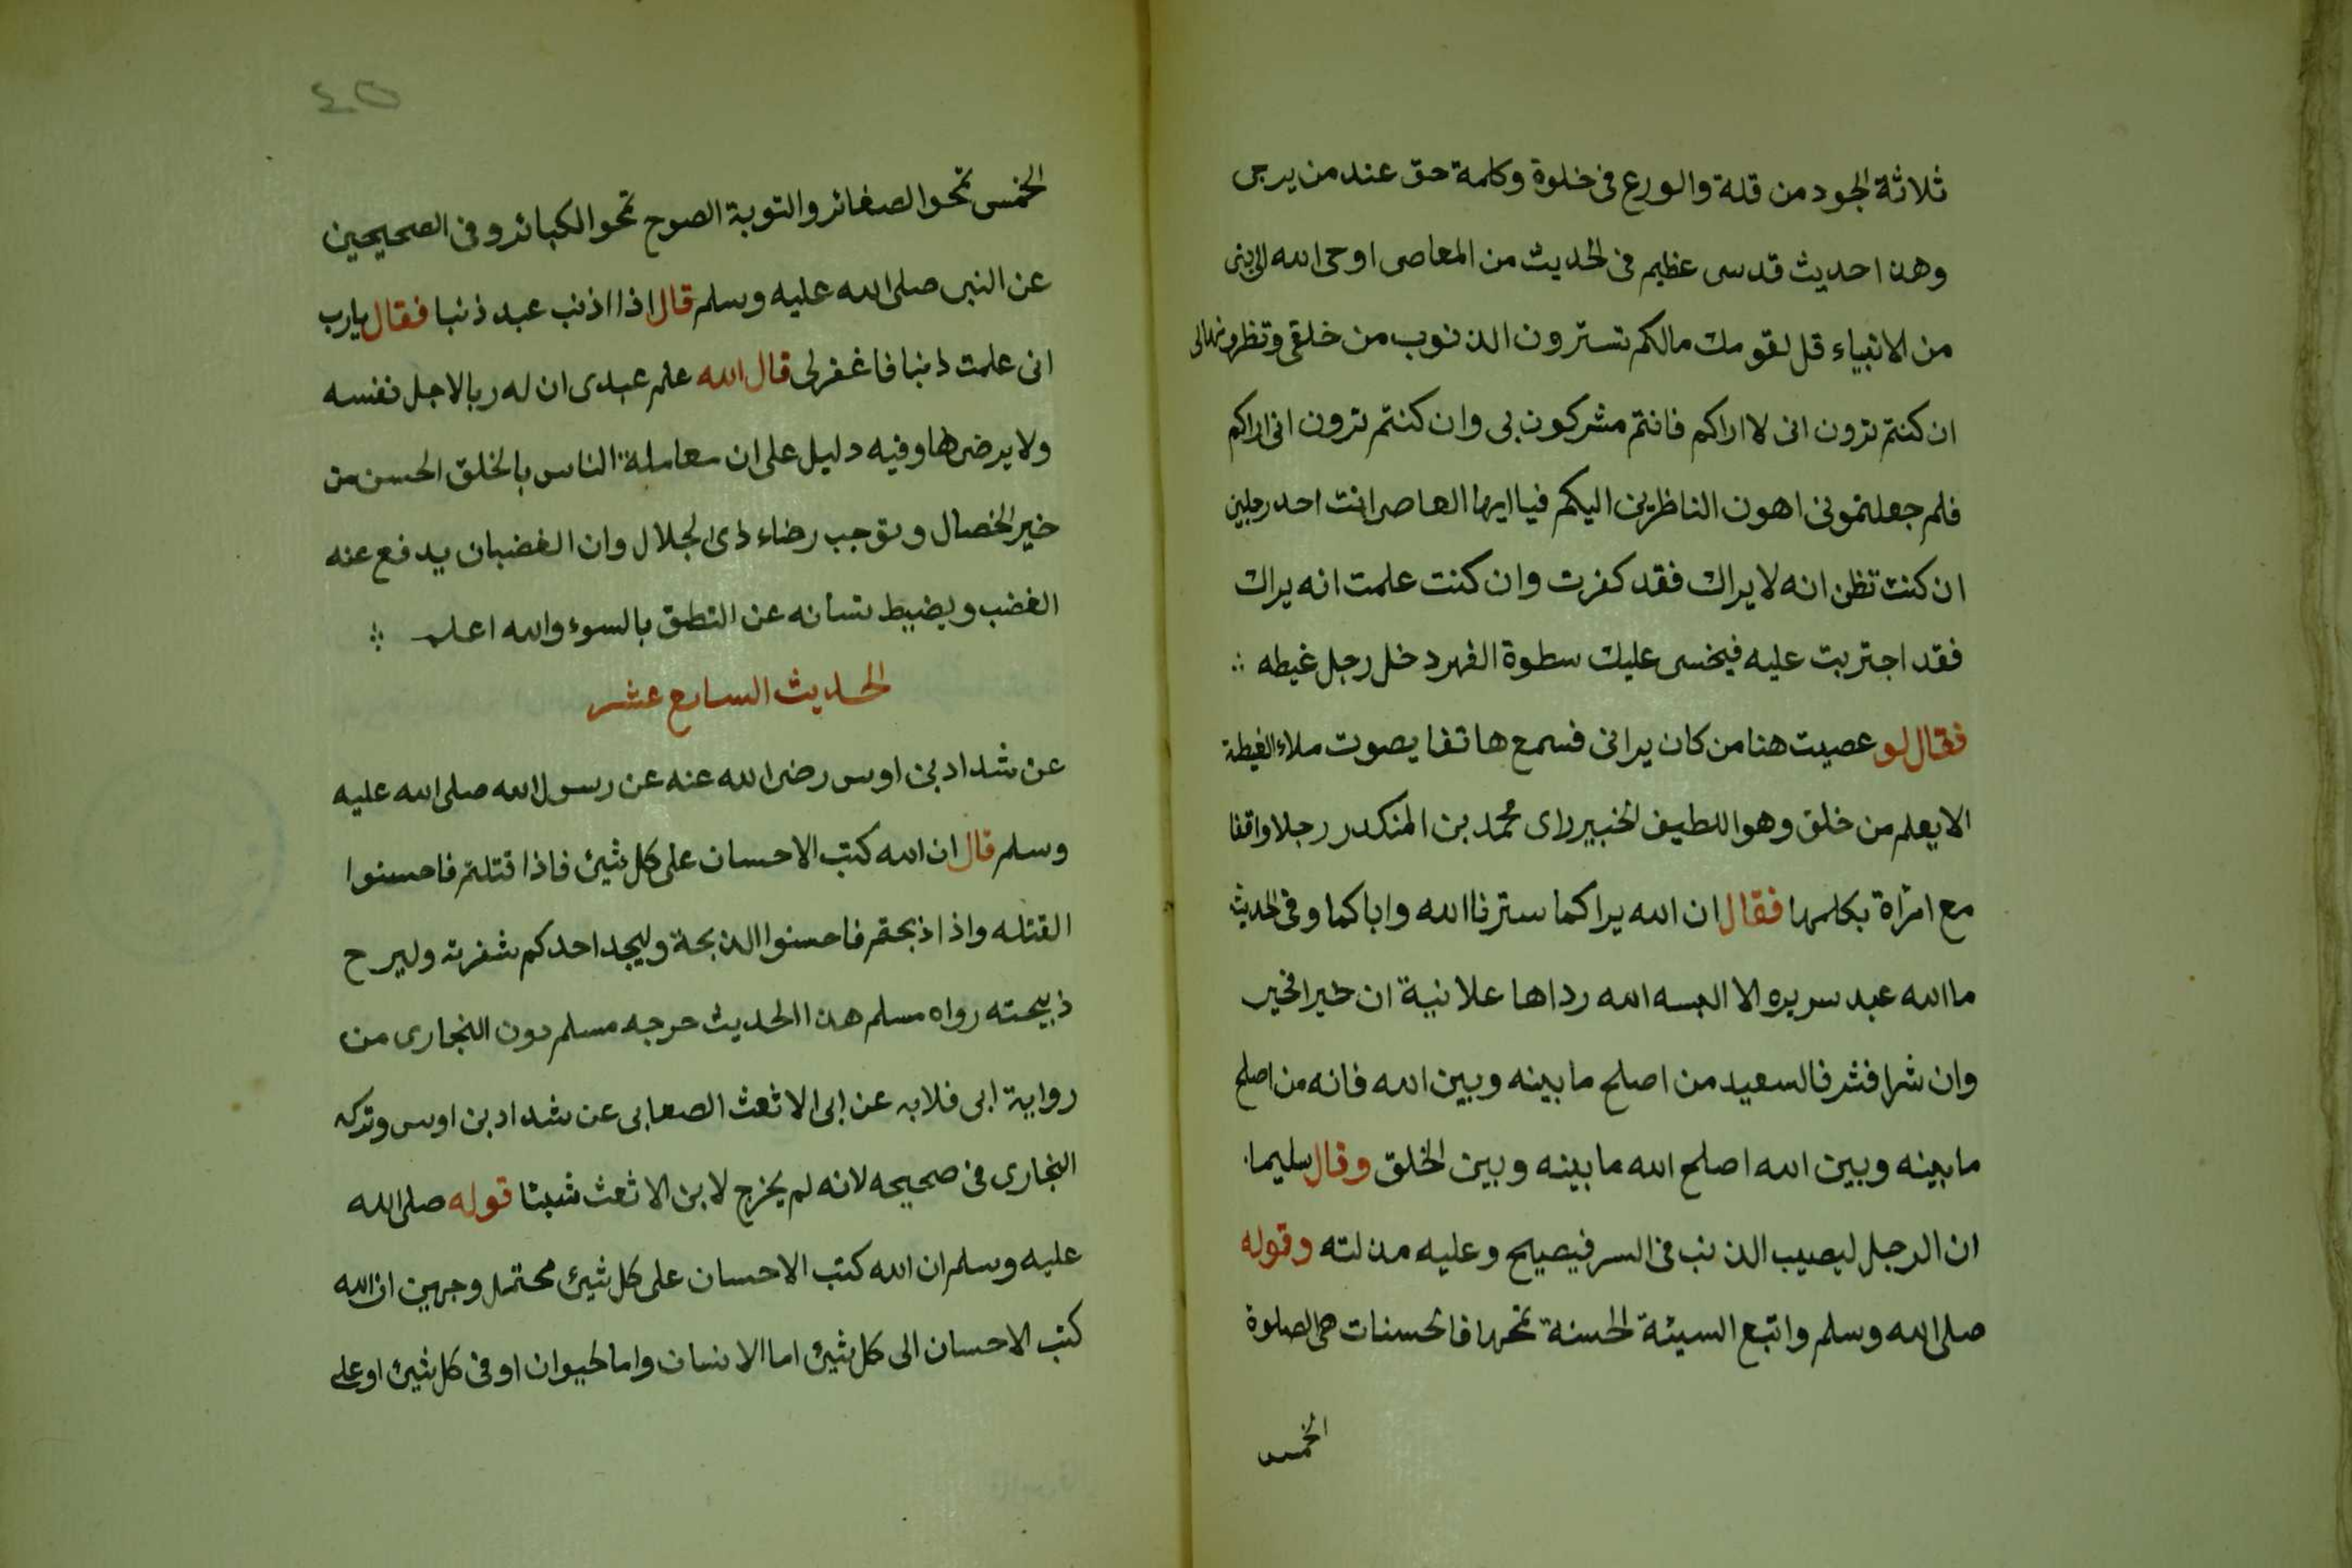 ثلاثة الجود من قلة والورع في خلوة وكلمة حق عند من يرجى
وهذا حديث قدسى عظيم في الحديث من المعاصى اوحى الله الى نبى
من الانبياء قل لقومك مالكم تسترون الذنوب من خلقى وتظهرونها الى
ان كنتم ترون انى لا اراكم فانتم مشركون بى وان كنتم ترون انى اراكم
فلم جعلتمونى اهون الناظرين اليكم فيا ايها العاصى انت احد رجلين
ان كنت تظن انه لا يراك فقد كفرت وان كنت علمت انه يراك
فقد اجتريت عليه فيخسى عليك سطوة القهر دخل رجل غيطه
فقال لو عصيت هنا من كان يرانى فسمع هاتفا يصوت ملاء الغيطة
الا يعلم من خلق وهو اللطيف الخبير راى محمد بن المنكدر رجلا واقفا
مع امراة يكلمها فقال ان الله يراكما سترنا الله واياكما وفى الحديث
ما الله عبد سريره الا البسه الله رداها علانية ان خيرا فخير
وان شرا فشر فالسعيد من اصلح ما بينه وبين الله فانه من اصلح
ما بينه وبين الله اصلح الله ما بينه وبين الخلق وقال سليمان
ان الرجل ليصيب الذنب في السر فيصبح وعليه مذلته وقوله
صلى الله وسلم واتبع السيئة الحسنة تمحها فالحسنات هى الصلوة
الخمس
٤٥
الخمس تمحو الصغائر والتوبة الصوح تمحو الكبائر وفى الصحيحين
عن النبى صلى الله عليه وسلم قال اذا اذنب عبد ذنبا فقال يارب
انى علمت ذنبا فاغفرلى قال الله علم عبدى ان له ربا لاجل نفسه
ولا يرضى لها وفيه دليل على ان معاملة الناس بالخلق الحسن من
خير الخصال وتوجب رضاء ذى الجلال وان الغضبان يدفع عنه
الغضب ويضبط لسانه عن النطق بالسوء والله اعلم
الحديث السابع عشر
عن شداد بن اوس رضى الله عنه عن رسول الله صلى الله عليه
وسلم قال ان الله كتب الاحسان على كل شيئ فاذا قتلتم فاحسنوا
القتله واذا ذبحتم فاحسنوا الذبحة وليحد احدكم شفرته وليرح
ذبيحته رواه مسلم هذا الحديث خرجه مسلم دون البخارى من
رواية ابى قلابه عن ابى الاشعث الصعابى عن شداد بن اوس وتركه
البخارى في صحيحه لانه لم يخرج لابن الاشعث شيئا قوله صلى الله
عليه وسلم ان الله كتب الاحسان على كل شيئ محتمل وجهين ان الله
كتب الاحسان الى كل شيئ اما الانسان واما الحيوان او فى كل شيئ او على